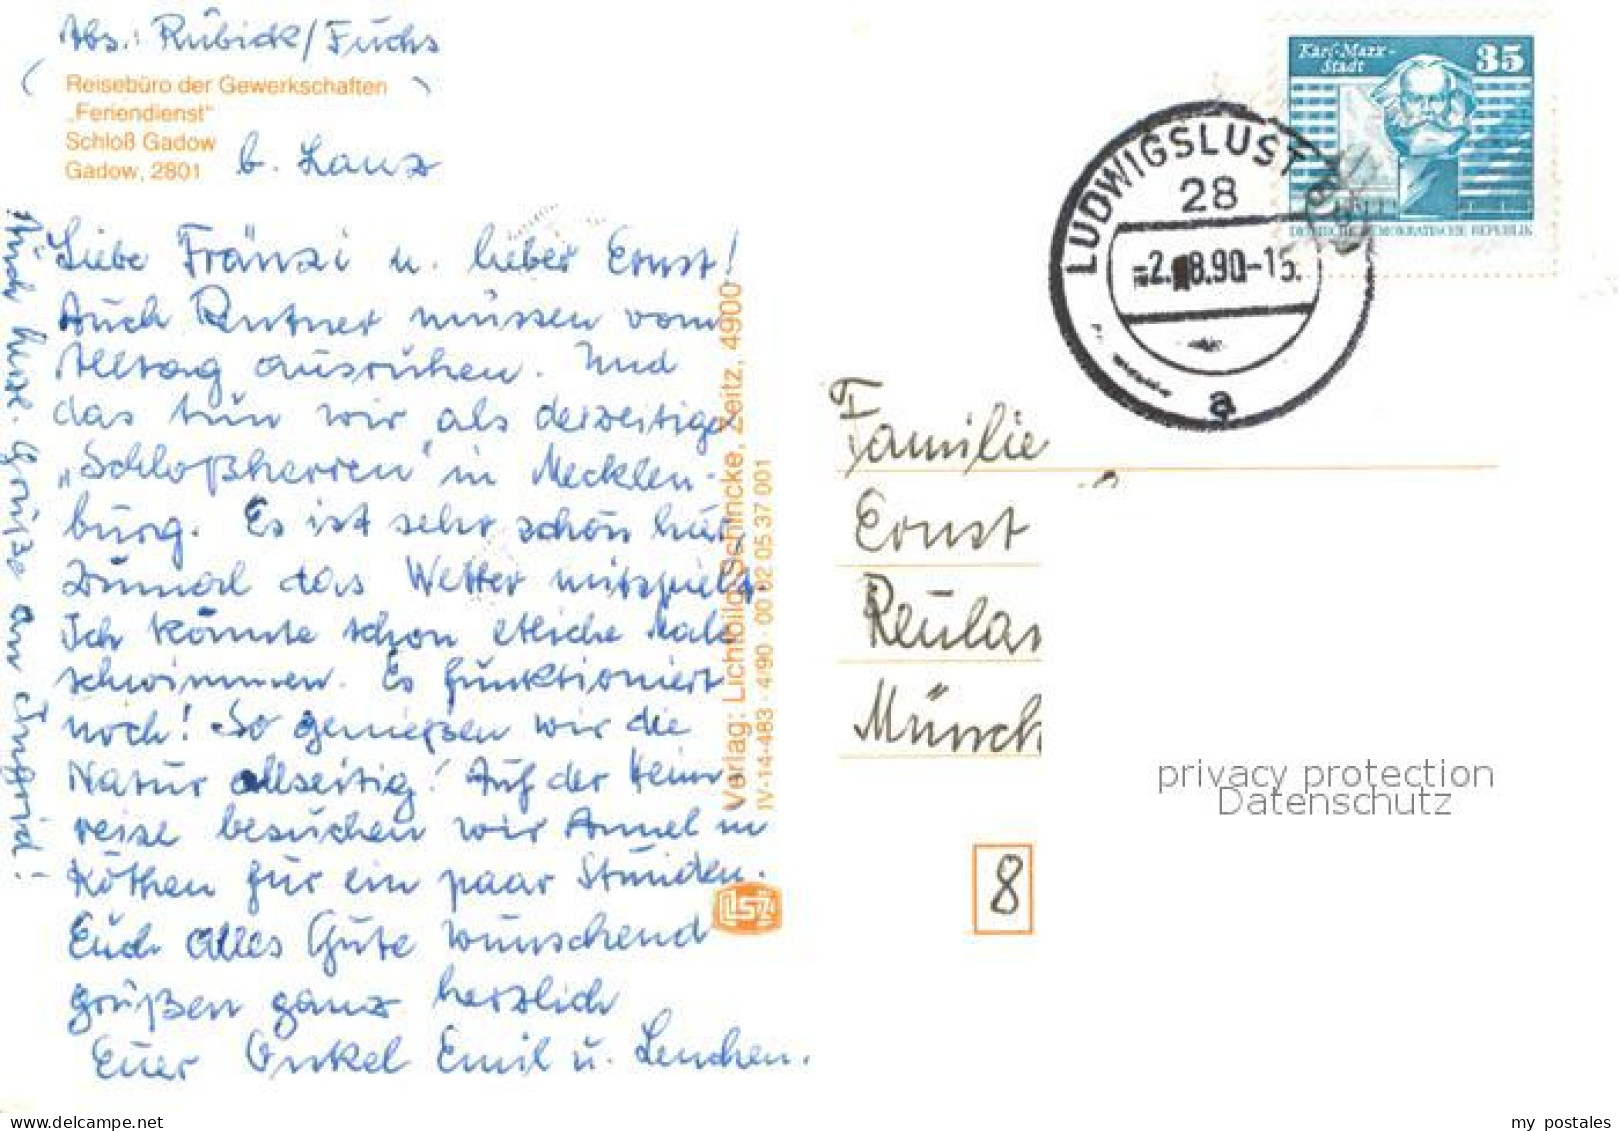 Abs.: Rübick/Fuchs
( Reisebüro der Gewerkschaften )
„Feriendienst"
Schloß Gadow
Gadow, 2801 b. Lanz
Liebe Fränzi u. lieber Ernst!
Auch Rentner müssen vom
Alltag ausruhen. Und
das tun wir als derzeitige
„Schloßherren" in Mecklen-
burg. Es ist sehr schön hier,
zumal das Wetter mitspielt.
Ich konnte schon etliche Male
schwimmen. Es funktioniert
noch! So genießen wir die
Natur allseitig! Auf der Heim-
reise besuchen wir Annel in
Köthen für ein paar Stunden.
Euch alles Gute wünschend
grüßen ganz herzlich
Euer Onkel Emil u. Lenchen.
Auch herzl. Grüße an Ingrid!
Verlag: Lichtbild Schincke, Zeitz, 4900
IV-14-483 · 4/90 · 00 02 05 37 001
LSZ
Karl-Marx-
Stadt
35
DEUTSCHE DEMOKRATISCHE REPUBLIK
LUDWIGSLUST
28
-2.-8.90-15.
a
Familie
Ernst
Reulas
Münch
8
privacy protection
Datenschutz
my postales